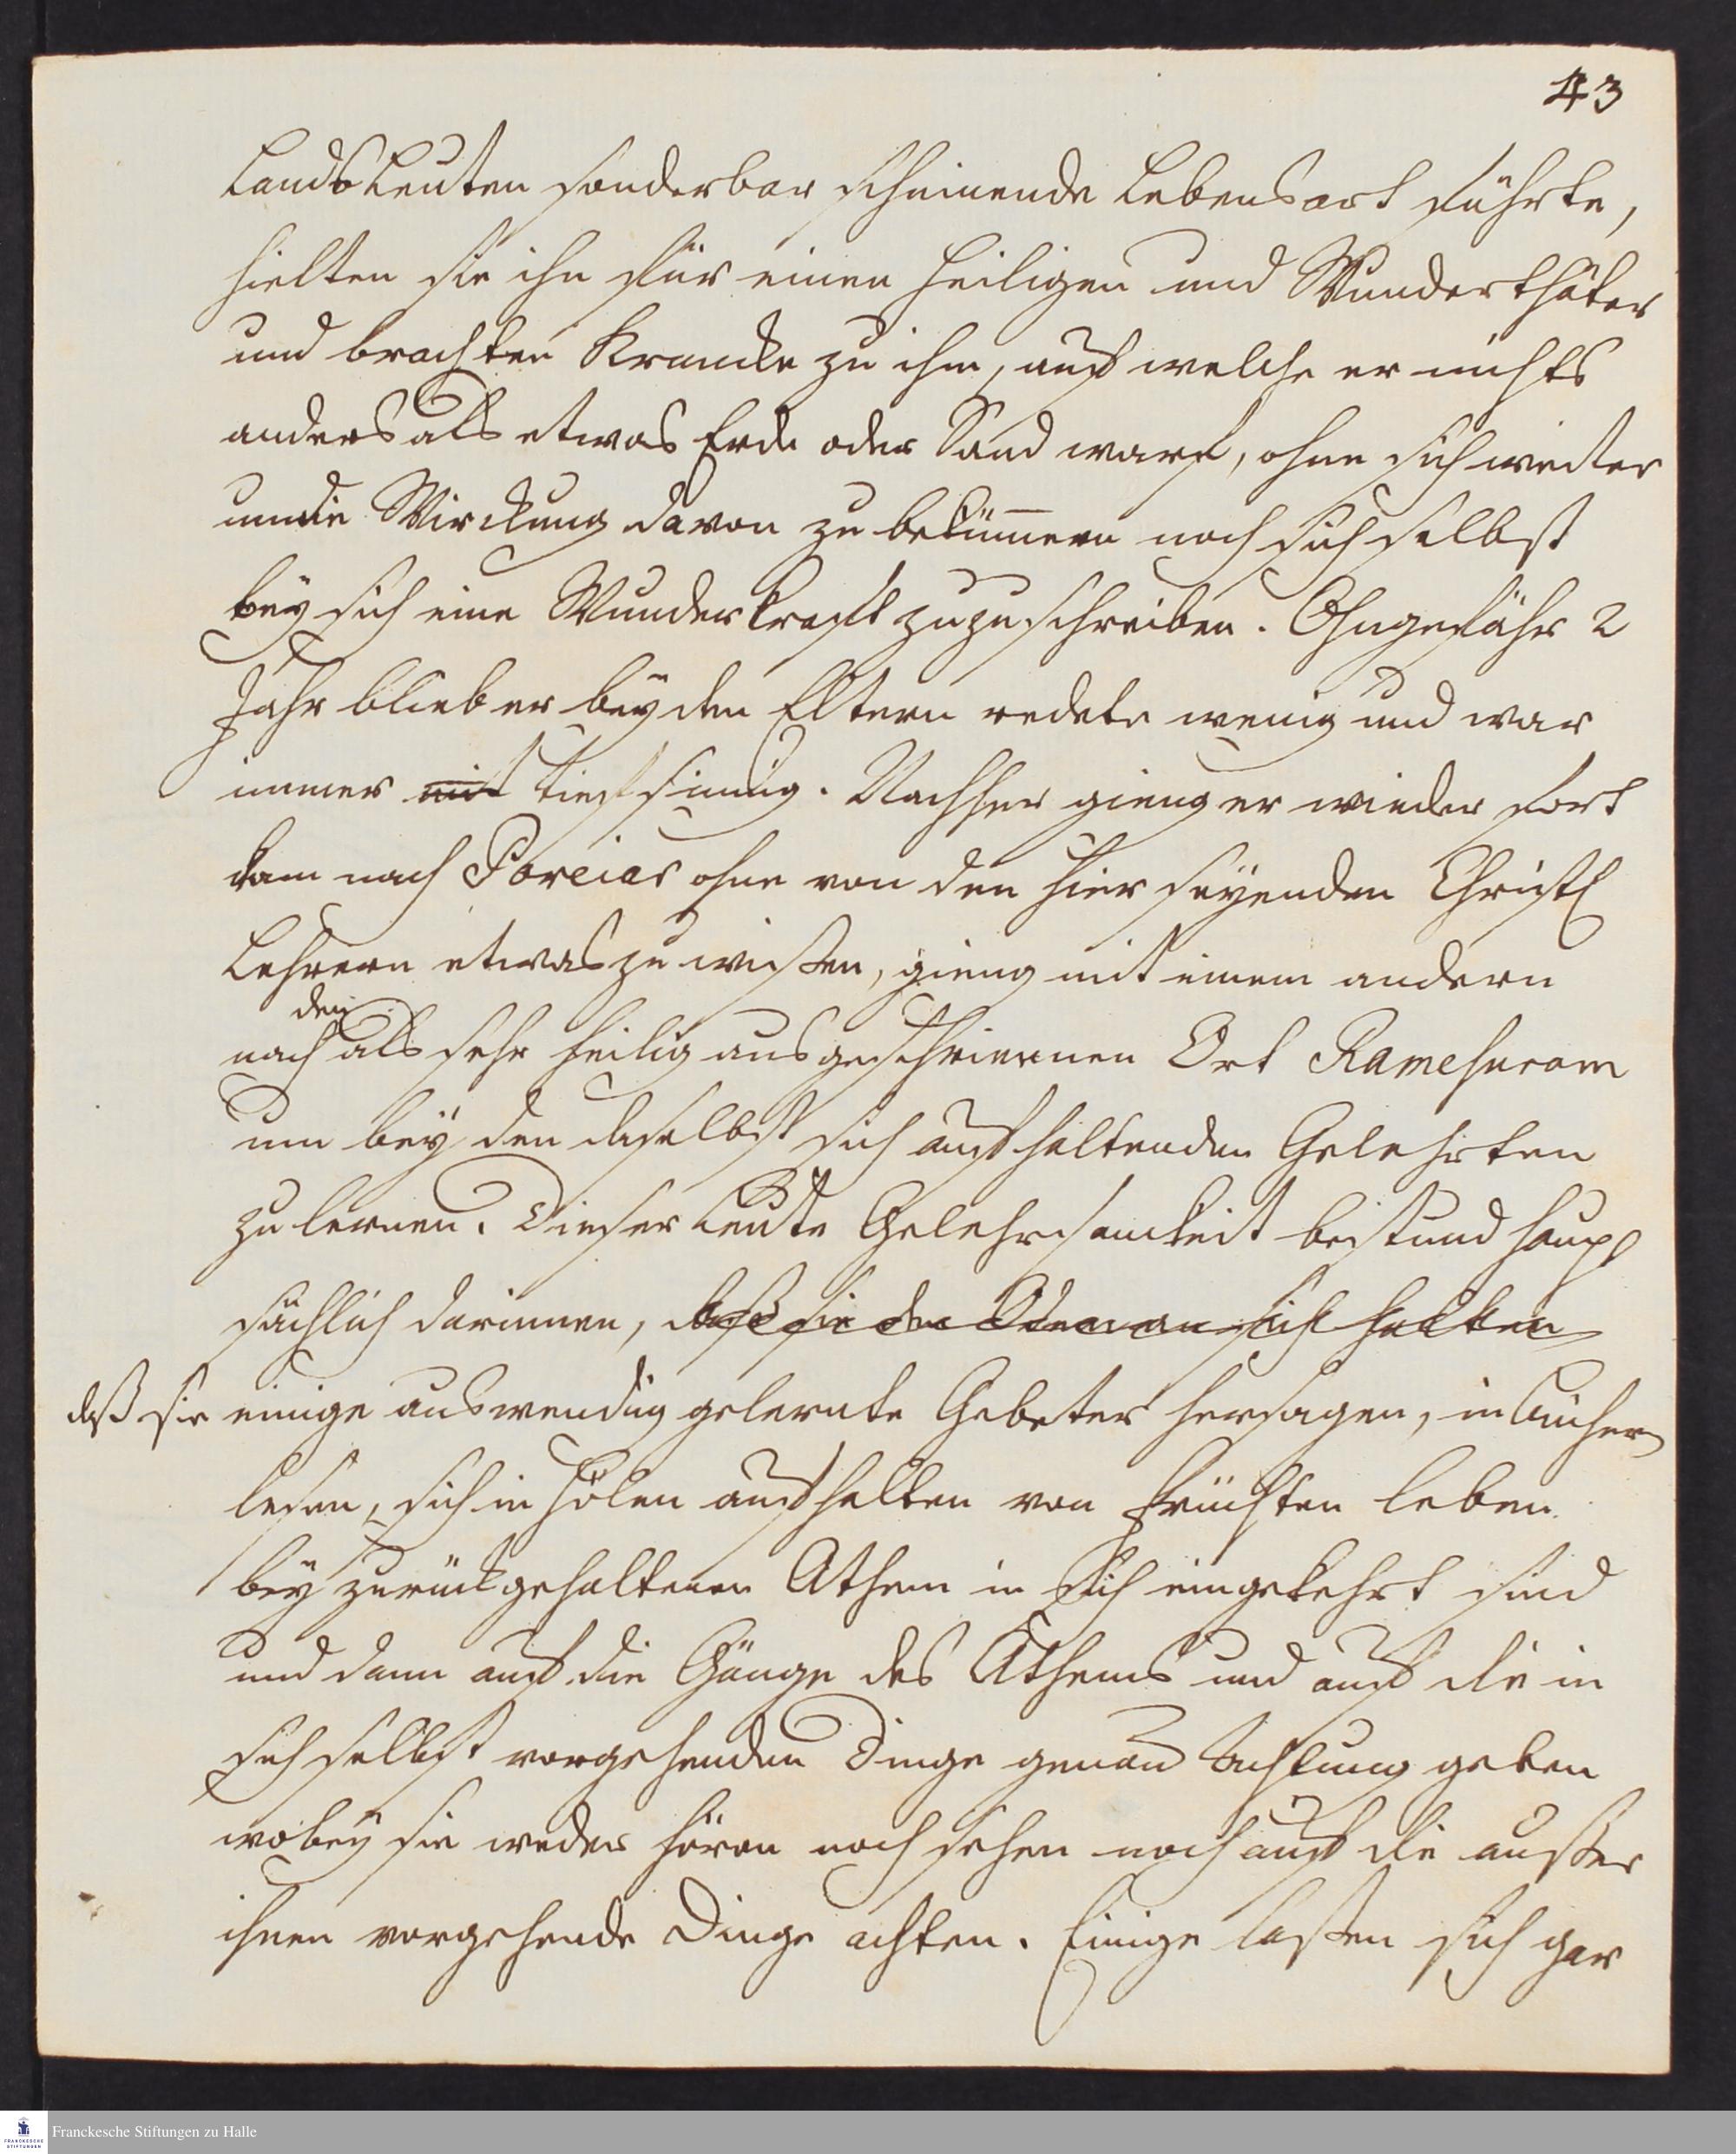 43
Landsleuten sonderbar scheinende Lebensart führte,
hielten sie ihn für einen Heiligen und Wunderthäter
und brachten Krancke zu ihm, auf welche er nichts
anders als etwas Erde oder Sand warf, ohne sich weiter
um die Wirckung davon zu bekümmern noch sich selbst
bey sich eine Wunderkraft zuzuschreiben. Ohngefähr 2
Jahr blieb er bey den Eltern redete wenig und war
immer mit tiefsinnig. Nachher gieng er wieder fort
kam nach Poreiar ohne von den hier seyenden Christl
Lehrern etwas zu wissen, gieng mit einem andern
den
nach als sehr heilig ausgeschrieenen Ort Ramesuram
um bey den daselbst sich aufhaltenden Gelehrten
zu lernen. Dieser Leute Gelehrsamkeit bestund haupt
sächlich darinnen, daß sie den Odem an sich halten
daß sie einige auswendig gelernte Gebeter hersagen, in Bücher
lesen, sich in Hölen aufhalten von Früchten leben
bey zurückgehaltenen Athem in sich eingekehrt sind
und dann auf die Gänge des Athems und auf die in
sich selbst vorgehenden Dinge genau Achtung geben
wobey sie weder hören noch sehen noch auf die ausser
ihnen vorgehende Dinge achten. Einige lassen sich gar
Franckesche Stiftungen zu Halle
FRANCKESCHE
STIFTUNGEN